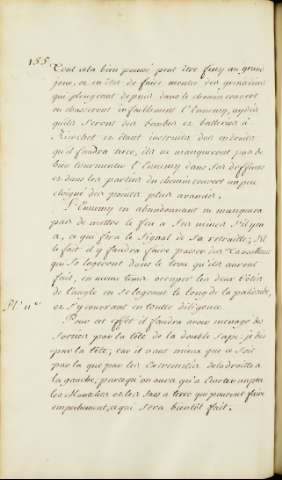 155.
Tout cela bien poussé peut être finy au grand
jour, et en état de faire monter des grenadiers
qui plongeant depuis dans le chemin couvert
en chasseront infailliblement l'Ennemy, aydés
qu'ils seront des bombes et batteries à
Ricochet et étant instruits des endroits
qu'il faudra tirer, ils ne manqueront pas de
bien tourmenter l'Ennemy dans ses deffenses
et dans les parties du chemin couvert un peu
éloigné des postes plus avancés.
L'Ennemy en abandonnant ne manquera
pas de mettre le feu à ses mines s'il y en
a, ce qui sera le signal de sa retraitte, s'il
le fait il y faudra faire passer des Travailleurs
qui se logeront dans le trou qu'elles auront
fait, en même tems occuper les deux côtés
de l'angle en se logeant le long de la palissade,
Pl. 11.e
et s'y couvrant en toutte diligence.
Pour cet effet il faudra avoir menagé des
sorties par la tête de la double sape: je dis
par la tête, car il vaut mieux que ce soit
par la que par les Extremités de la droitte à
la gauche, parcequ'on aura qu'à Ecarter un peu
les Mantelets et les sacs à terre qui peuvent faire
empechement, ce qui sera bientôt fait.